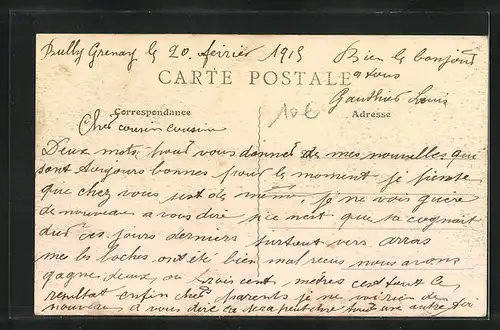 Bully Grenay le 20 février 1915
Bien le bonjour
a tous
CARTE POSTALE
Gauthier Louis
Correspondance
Adresse
10€
Cher cousin cousine
Deux mots pour vous donner de mes nouvelles qui
sont toujours bonnes pour le moment je pense
que chez vous est de même je ne vois guere
de nouveau a vous dire si ce nest que sa cognait
dur ces jours derniers surtout vers arras
mes les boches ont été bien mal recus nous avons
gagne deux ou trois cent mètres cest tout le
resultat enfin cher parents je ne vois rien de
nouveau a vous dire ca sera peut etre pour une autre foi